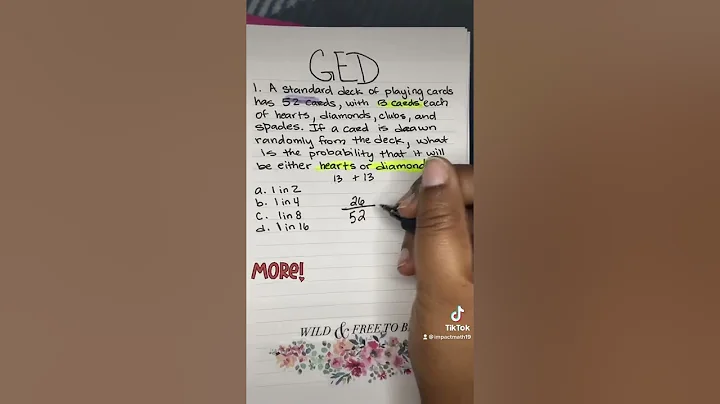 GED
1. A standard deck of playing cards
has 52 cards, with 13 cards each
of hearts, diamonds, clubs, and
spades. If a card is drawn
randomly from the deck, what
is the probability that it will
be either hearts or diamond
13 + 13
a. 1 in 2
b. 1 in 4
c. 1 in 8
d. 1 in 16
26
52
MORE!
WILD & FREE TO B
TikTok
@impactmath19